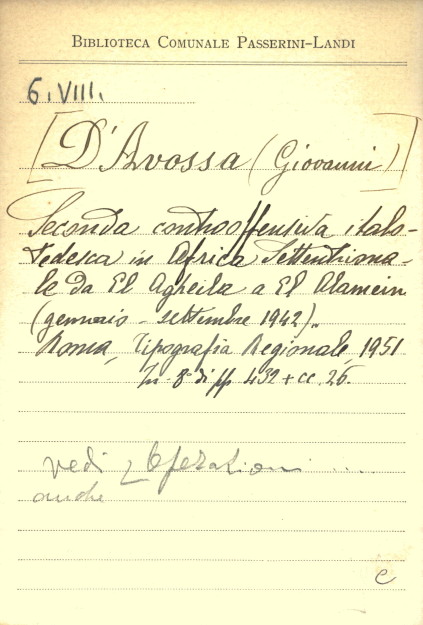 BIBLIOTECA COMUNALE PASSERINI-LANDI
6.VIII.
[D'Avossa (Giovanni)]
Seconda controoffensiva italo-
tedesca in Africa Settentriona-
le da El Agheila a El Alamein
(gennaio - settembre 1942)..
Roma, Tipografia Regionale, 1951
In 8° di pp. 432 + cc. 26.
vedi Operazioni ....
anche
C